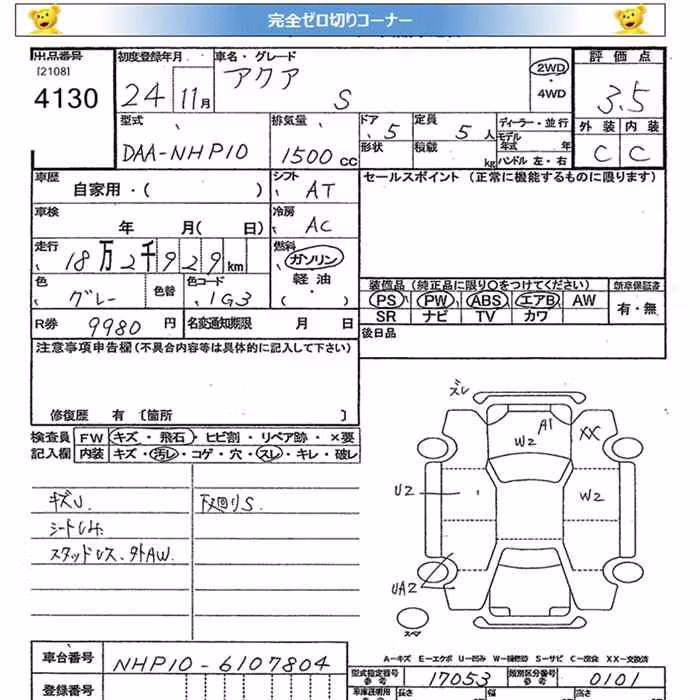 完全ゼロ切りコーナー
出品番号
[2108]
4130
初度登録年月
24 11月
車名・グレード
アクア
S
2WD
・
4WD
評価点
3.5
外装 内装
C C
型式
DAA-NHP10
排気量
1500 cc
ドア
5
形状
定員
5人
積載
kg
ディーラー・並行
モデル
年式 年
ハンドル 左・右
車歴
自家用・( )
シフト
AT
車検
年 月( 日)
冷房
AC
走行
18万2千929km
燃料
ガソリン
軽油
・( )
色
グレー
色替
色コード
1G3
R券
9980 円
名変通知期限 月 日
セールスポイント (正常に機能するものに限ります)
装備品 (純正品に限り○をつけてください)
PS PW ABS エアB AW
SR ナビ TV カワ
新車保証書
有・無
後日品
注意事項申告欄(不具合内容等は具体的に記入して下さい)
修復歴 有 〔箇所 〕
検査員
記入欄
FW キズ・飛石・ヒビ割・リペア跡・×要
内装 キズ・汚レ・コゲ・穴・スレ・キレ・破レ
キズU.
スタッドレス.外AW.
下回りS.
ズレ
A1
W2
XX
U2
W2
UA2
スペア
A-キズ E-エクボ U-凹み W-補修跡 S-サビ C-腐食 XX-交換済
車台番号
NHP10-6107804
登録番号
型式指定番号
参考
17053
類別区分番号
参考
0101
長さ
幅
高さ